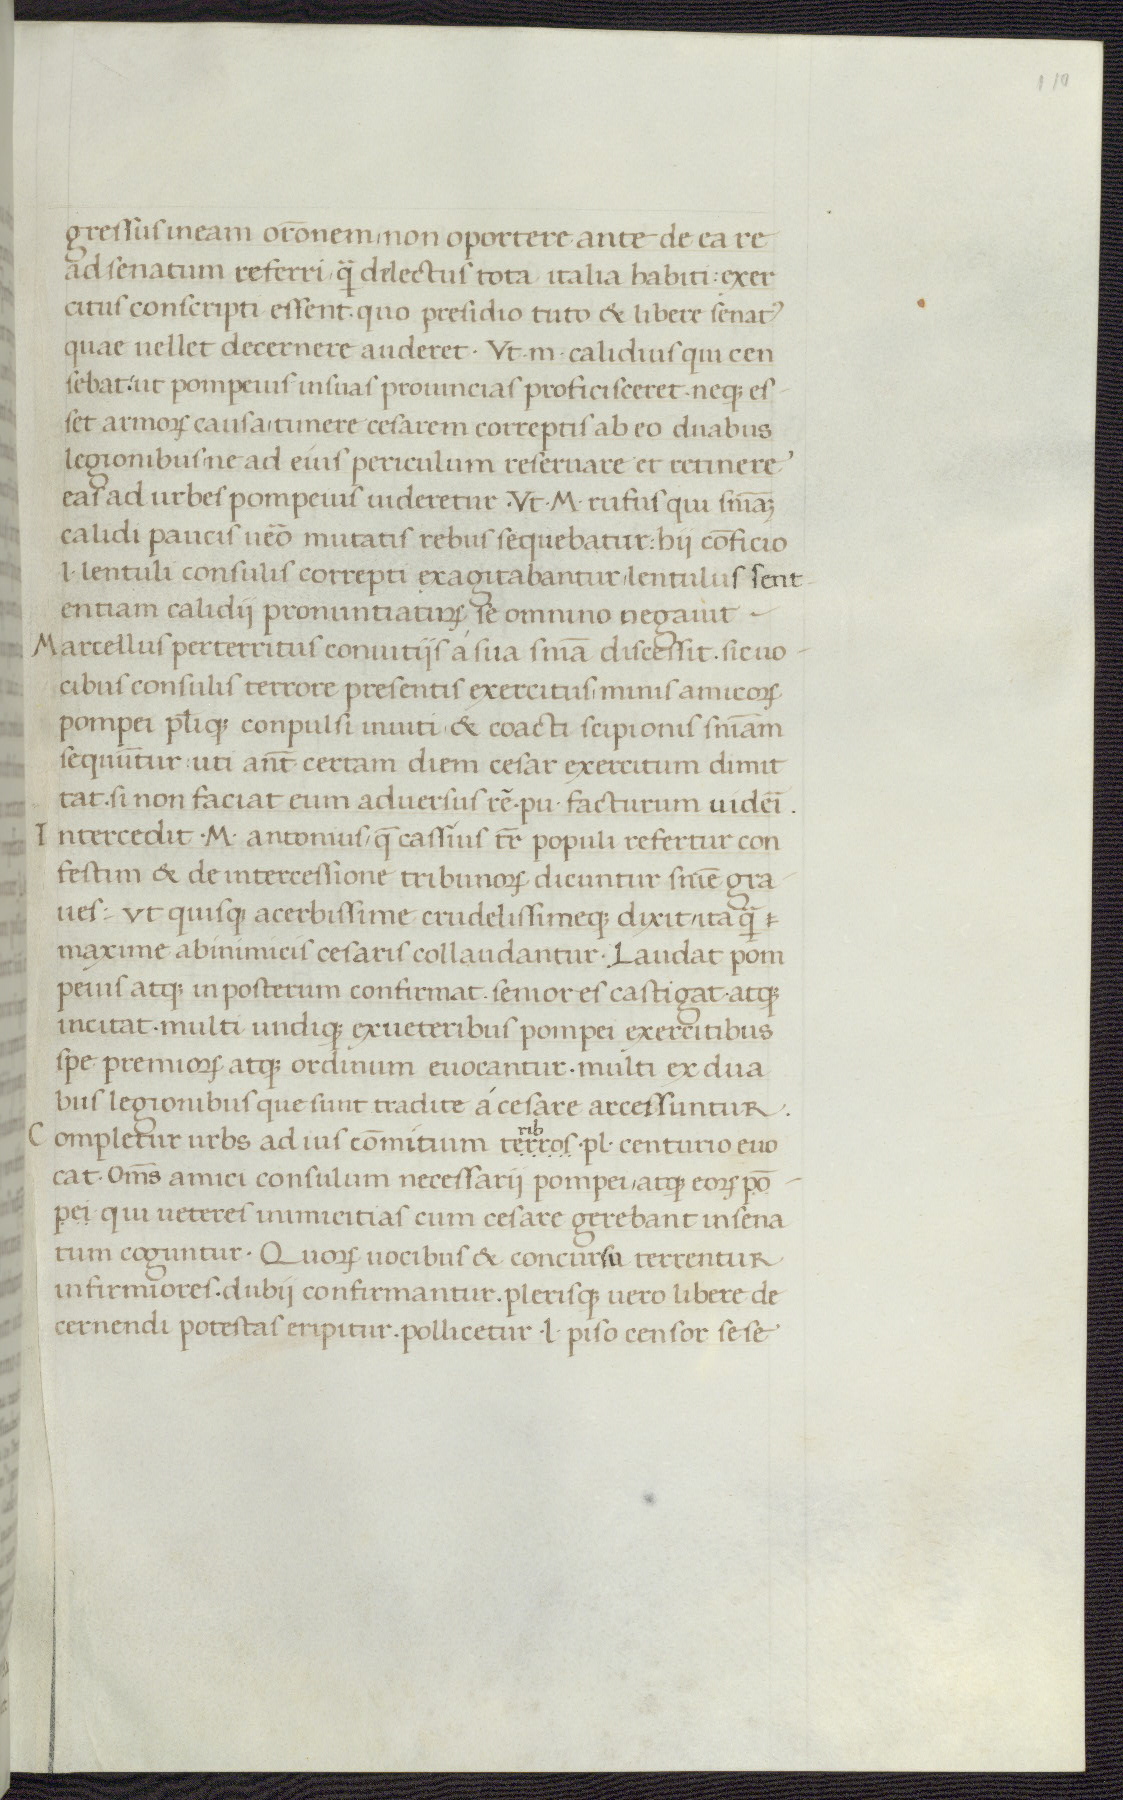 110
gressus in eam or̄onem, non oportere ante de ea re
ad senatum referri q̄ delectus tota italia habiti: exer
citus conscripti essent. quo presidio tuto & libere senatꝰ
quae uellet decernere auderet. Vt .m. calidius qui cen
sebat: ut pompeius in suas prouincias proficisceret. neqꝫ es-
set armoꝝ causa, timere cesarem correptis ab eo duabus
legionibus ne ad eius periculum reseruare et retinere
eas ad urbes pompeius uideretur. Vt .M. rufus qui sn̄iaꝫ
calidi paucis uēo mutatis rebus sequebatur: hij cōficio
.l. lentuli consulis correpti exagitabantur, lentulus sent-
entiam calidij pronuntiatuꝝ se omnino negauit
Marcellus perterritus conuitijs á sua sn̄ia discessit. sic uo-
cibus consulis terrore presentis exercitus, minis amicoꝝ
pompei pl̄iqꝫ conpulsi inuiti & coacti scipionis sn̄iam
sequūtur: uti an̄t certam diem cesar exercitum dimit
tat. si non faciat eum aduersus rē. pu. facturum uidēi.
Intercedit .M. antonius, q̄ cassius tr̄ populi refertur con
festim & de intercessione tribunoꝝ dicuntur sn̄ie gra
ues: vt quisqꝫ acerbissime crudelissimeqꝫ dixit, ita q̄
maxime ab inimicis cesaris collaudantur. Laudat pom
peius atqꝫ in posterum confirmat. seniores castigat. atqꝫ
incitat. multi undiqꝫ ex ueteribus pompei exercitibus
spe premioꝝ atqꝫ ordinum euocantur. multi ex dua
bus legionibus que sunt tradite á cesare arcessuntur.
Completur urbs ad ius cōmitium terros .pl. centurio euo
rib
cat. Om̄s amici consulum necessarij pompei, atqꝫ eoꝝ pō-
pei qui ueteres inimicitias cum cesare gerebant in sena
tum coguntur. Quoꝝ uocibus & concursu terrentur
infirmiores. dubij confirmantur. plerisqꝫ uero libere de
cernendi potestas eripitur. pollicetur .l. piso censor sese